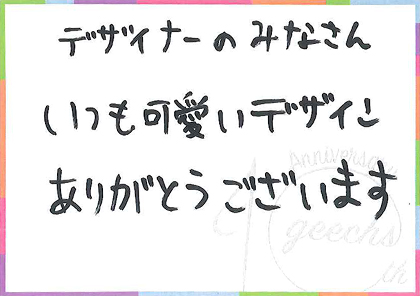 デザイナーのみなさん
いつも可愛いデザイン
ありがとうございます
Anniversary
geechs
10th